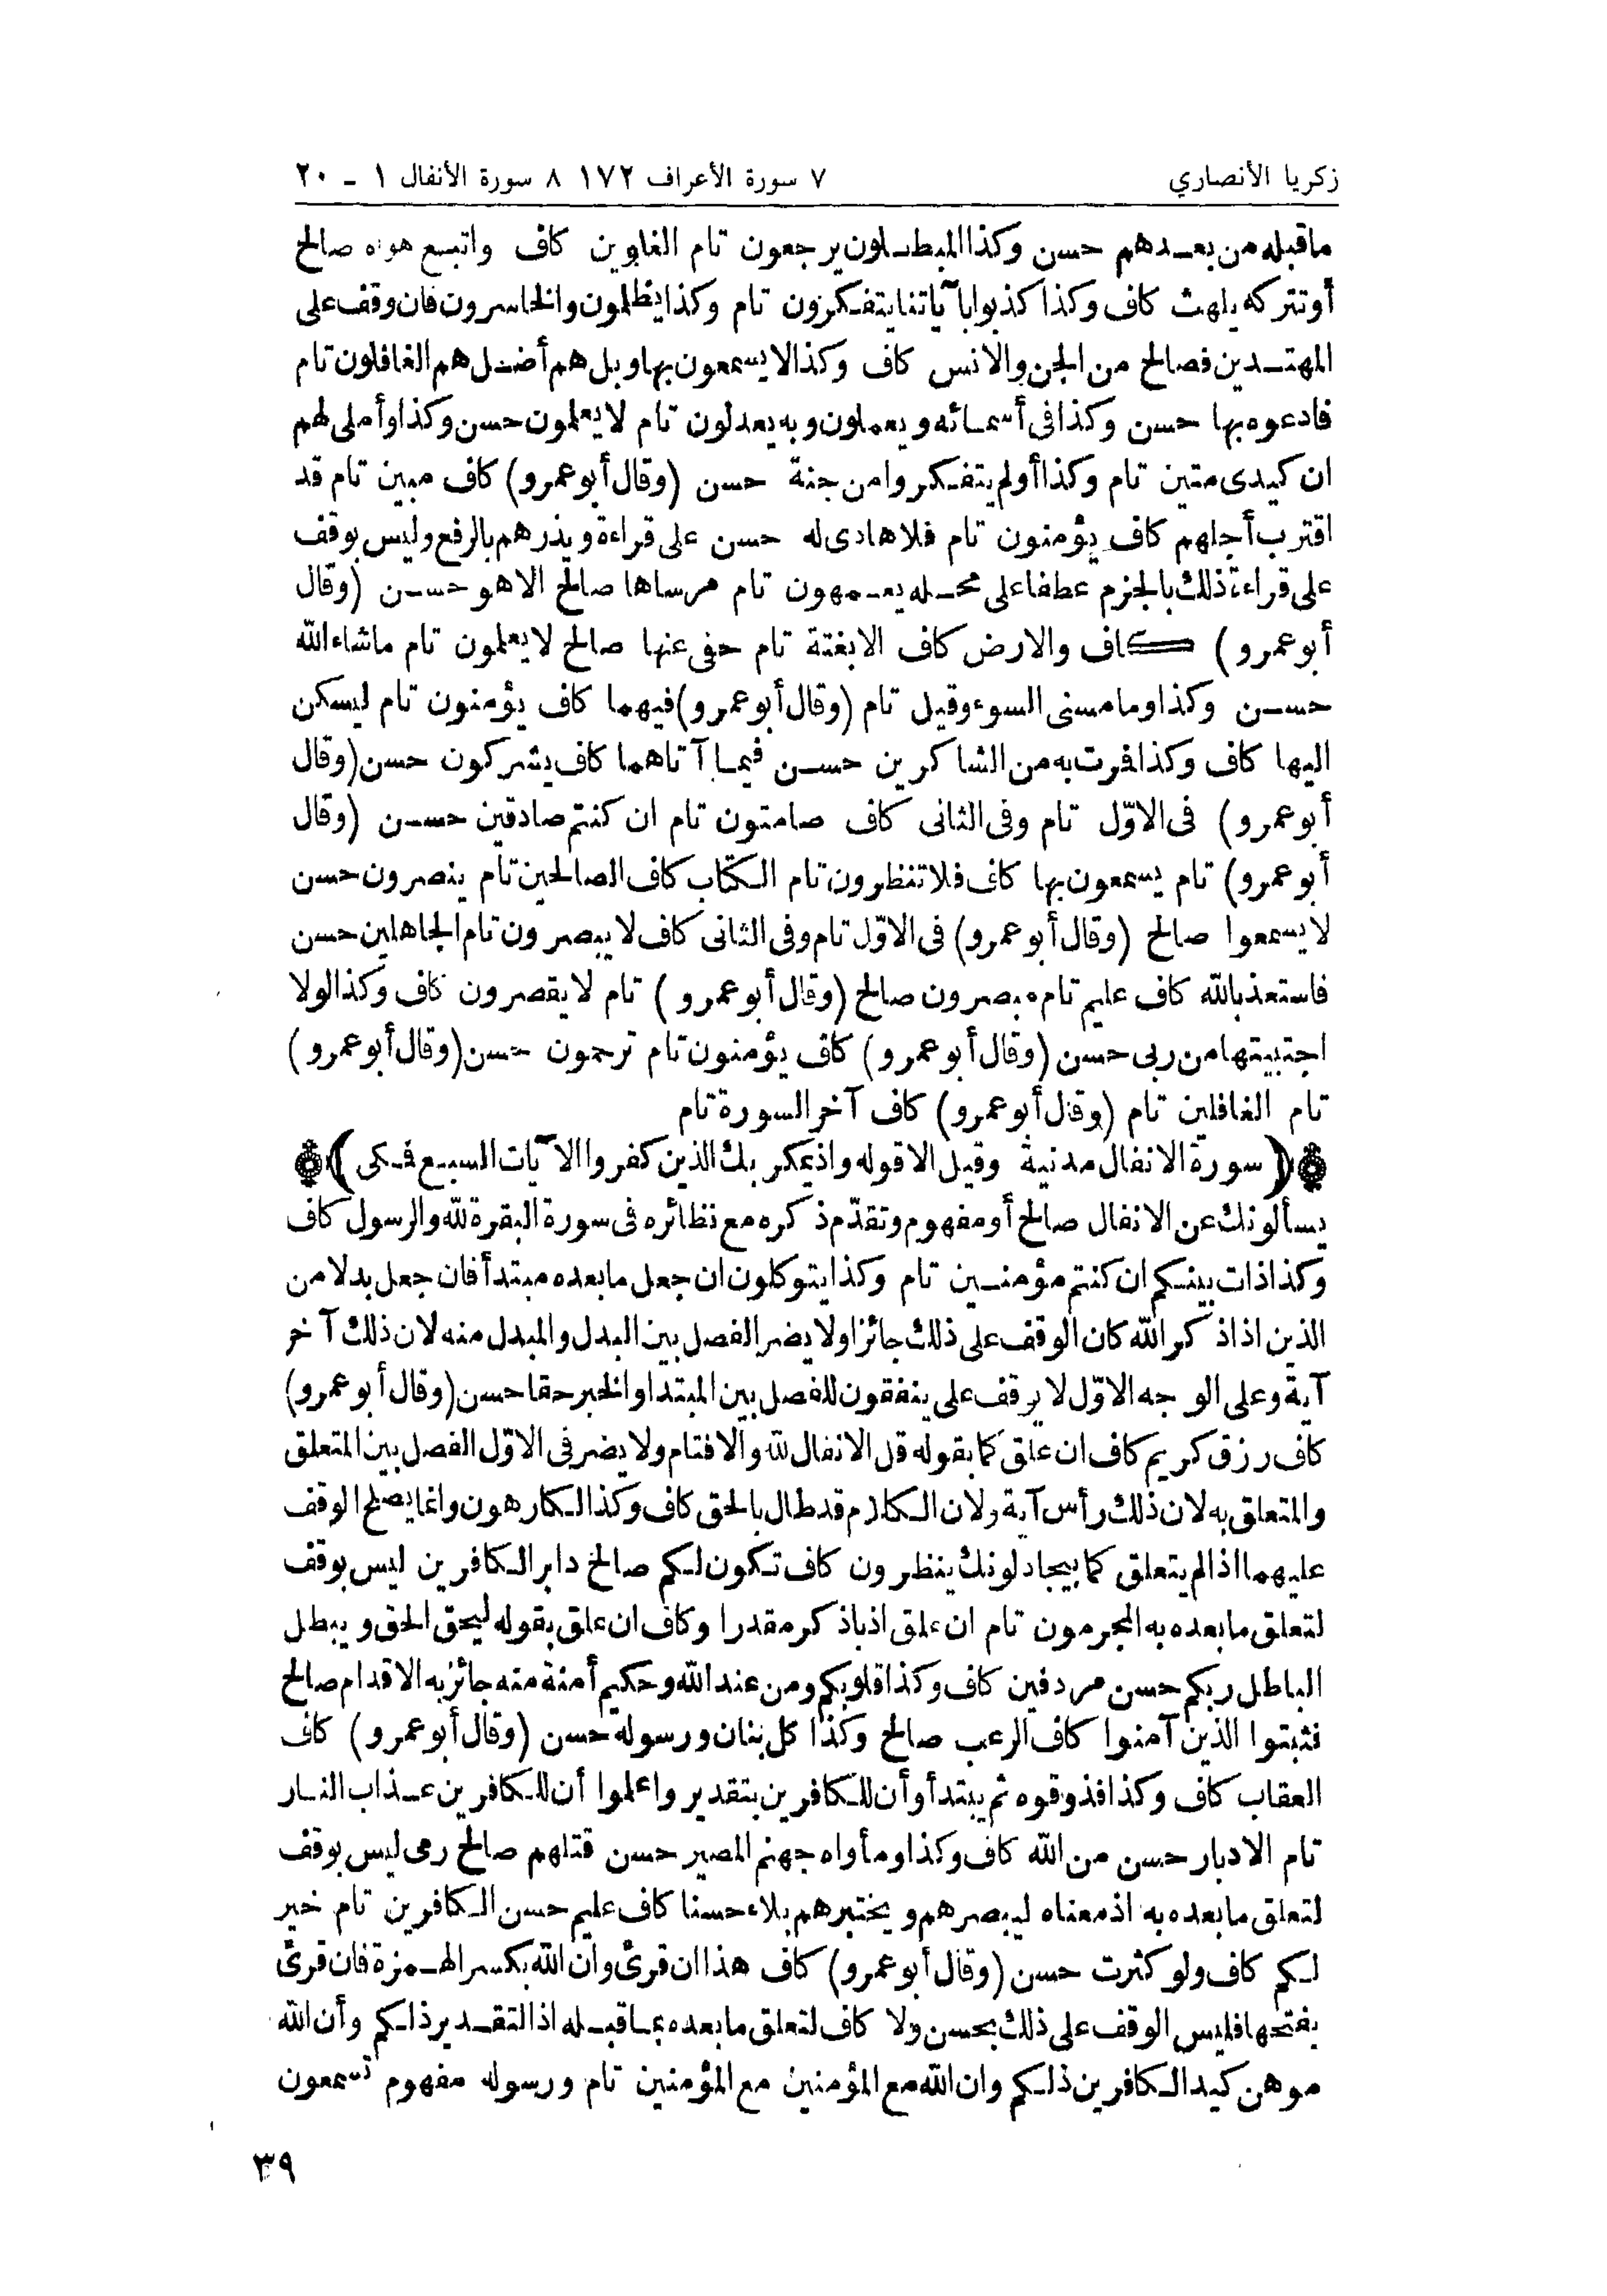 زكريا الأنصاري ٧ سورة الأعراف ١٧٢ ٨ سورة الأنفال ١ ـ ٢٠
ماقبله من بعدهم حسن وكذا المبطلون يرجعون تام الغاوين كاف واتبع هواه صالح
أوتتركه يلهث كاف وكذا كذبوا بآياتنا يتفكرون تام وكذا يظلمون والخاسرون فان وقف على
المهتدين فصالح من الجن والانس كاف وكذا لا يسمعون بها وبل هم أضل هم الغافلون تام
فادعوه بها حسن وكذا فى أسمائه ويعملون وبه يعدلون تام لا يعلمون حسن وكذا وأملى لهم
ان كيدى متين تام وكذا أولم يتفكروا من جنة حسن (وقال أبو عمرو) كاف مبين تام قد
اقترب أجلهم كاف يؤمنون تام فلا هادى له حسن على قراءة ويذرهم بالرفع وليس بوقف
على قراءة ذلك بالجزم عطفا على محله يعمهون تام مرساها صالح الا هو حسن (وقال
أبو عمرو) كاف والارض كاف الا بغتة تام حفى عنها صالح لا يعلمون تام ماشاء الله
حسن وكذا وما مسنى السوء وقيل تام (وقال أبو عمرو) فيهما كاف يؤمنون تام ليسكن
اليها كاف وكذا فمرت به من الشاكرين حسن فيما آتاهما كاف يشركون حسن (وقال
أبو عمرو) فى الاوّل تام وفى الثانى كاف صامتون تام ان كنتم صادقين حسن (وقال
أبو عمرو) تام يسمعون بها كاف فلا تنظرون تام الكتاب كاف الصالحين تام ينصرون حسن
لا يسمعوا صالح (وقال أبو عمرو) فى الاوّل تام وفى الثانى كاف لا يبصرون تام الجاهلين حسن
فاستعذ بالله كاف عليم تام مبصرون صالح (وقال أبو عمرو) تام لا يقصرون كاف وكذا لولا
اجتبيتها من ربى حسن (وقال أبو عمرو) كاف يؤمنون تام ترحمون حسن (وقال أبو عمرو)
تام الغافلين تام (وقال أبو عمرو) كاف آخر السورة تام
(سورة الانفال مدنية وقيل الا قوله واذ يمكر بك الذين كفروا الآيات السبع فمكى)
يسألونك عن الانفال صالح أو مفهوم وتقدّم ذكره مع نظائره فى سورة البقرة لله والرسول كاف
وكذا ذات بينكم ان كنتم مؤمنين تام وكذا يتوكلون ان جعل ما بعده مبتدأ فان جعل بدلا من
الذين اذا ذكر الله كان الوقف على ذلك جائزا ولا يضر الفصل بين البدل والمبدل منه لان ذلك آخر
آية وعلى الوجه الاوّل لا يوقف على ينفقون للفصل بين المبتدا والخبر حقا حسن (وقال أبو عمرو)
كاف رزق كريم كاف ان علق كما بقوله قل الانفال لله والا فتام ولا يضر فى الاوّل الفصل بين المتعلق
والمتعلق به لان ذلك رأس آية ولان الكلام قد طال بالحق كاف وكذا لكارهون وانما يصلح الوقف
عليهما اذا لم يتعلق كما بيجادلونك ينظرون كاف تكون لكم صالح دابر الكافرين ليس بوقف
لتعلق ما بعده به المجرمون تام ان علق اذ باذكر مقدرا وكاف ان علق بقوله ليحق الحق ويبطل
الباطل ربكم حسن مردفين كاف وكذا قلوبكم ومن عند الله وحكيم أمنة منه جائز به الاقدام صالح
فثبتوا الذين آمنوا كاف الرعب صالح وكذا كل بنان ورسوله حسن (وقال أبو عمرو) كاف
العقاب كاف وكذا فذوقوه ثم يبتدأ وأن للكافرين بتقدير واعلموا أن للكافرين عذاب النار
تام الادبار حسن من الله كاف وكذا ومأواه جهنم المصير حسن قتلهم صالح رمى ليس بوقف
لتعلق ما بعده به اذ معناه ليبصرهم ويختبرهم بلاء حسنا كاف عليم حسن الكافرين تام خير
لكم كاف ولو كثرت حسن (وقال أبو عمرو) كاف هذا ان قرئ وان الله بكسر الهمزة فان قرئ
بفتحها فليس الوقف على ذلك بحسن ولا كاف لتعلق ما بعده بما قبله اذ التقدير ذلكم وأن الله
موهن كيد الكافرين ذلكم وان الله مع المؤمنين مع المؤمنين تام ورسوله مفهوم تسمعون
٣٩